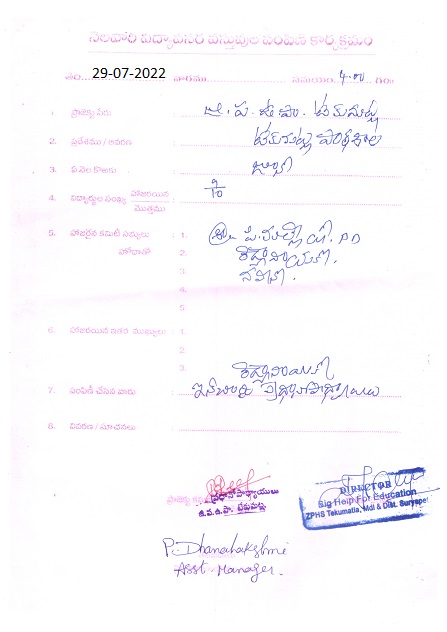 నెలవారి విద్యావసర వస్తువుల పంపిణి కార్యక్రమం
తేది. 29-07-2022 వారము సమయం. 4.00 గం॥
1. ప్రాజెక్టు పేరు : జి. ప. ఉ. పా. టేకుమట్ల
2. ప్రదేశము / ఆవరణ : టేకుమట్ల పాఠశాల
3. ఏ నెల కొఱకు : జులై
4. విద్యార్థుల సంఖ్య హాజరయిన / మొత్తము : 9/10
5. హాజరైన కమిటీ సభ్యులు : 1. శ్రీ పి. P.D
హోదాతో 2.
3.
4.
5.
6. హాజరయిన ఇతర ముఖ్యులు : 1.
2.
3.
7. పంపిణీ చేసిన వారు : ప్రధానోపాధ్యాయులు
8. వివరణ / సూచనలు :
ప్రాజెక్టు
ప్రధానోపాధ్యాయులు
జి.ప.ఉ.పా. టేకుమట్ల
DIRECTOR
Big Help For Education
ZPHS Tekumatla, Mdl & Dist. Suryapet
P. Dhanalakshmi
Asst Manager.